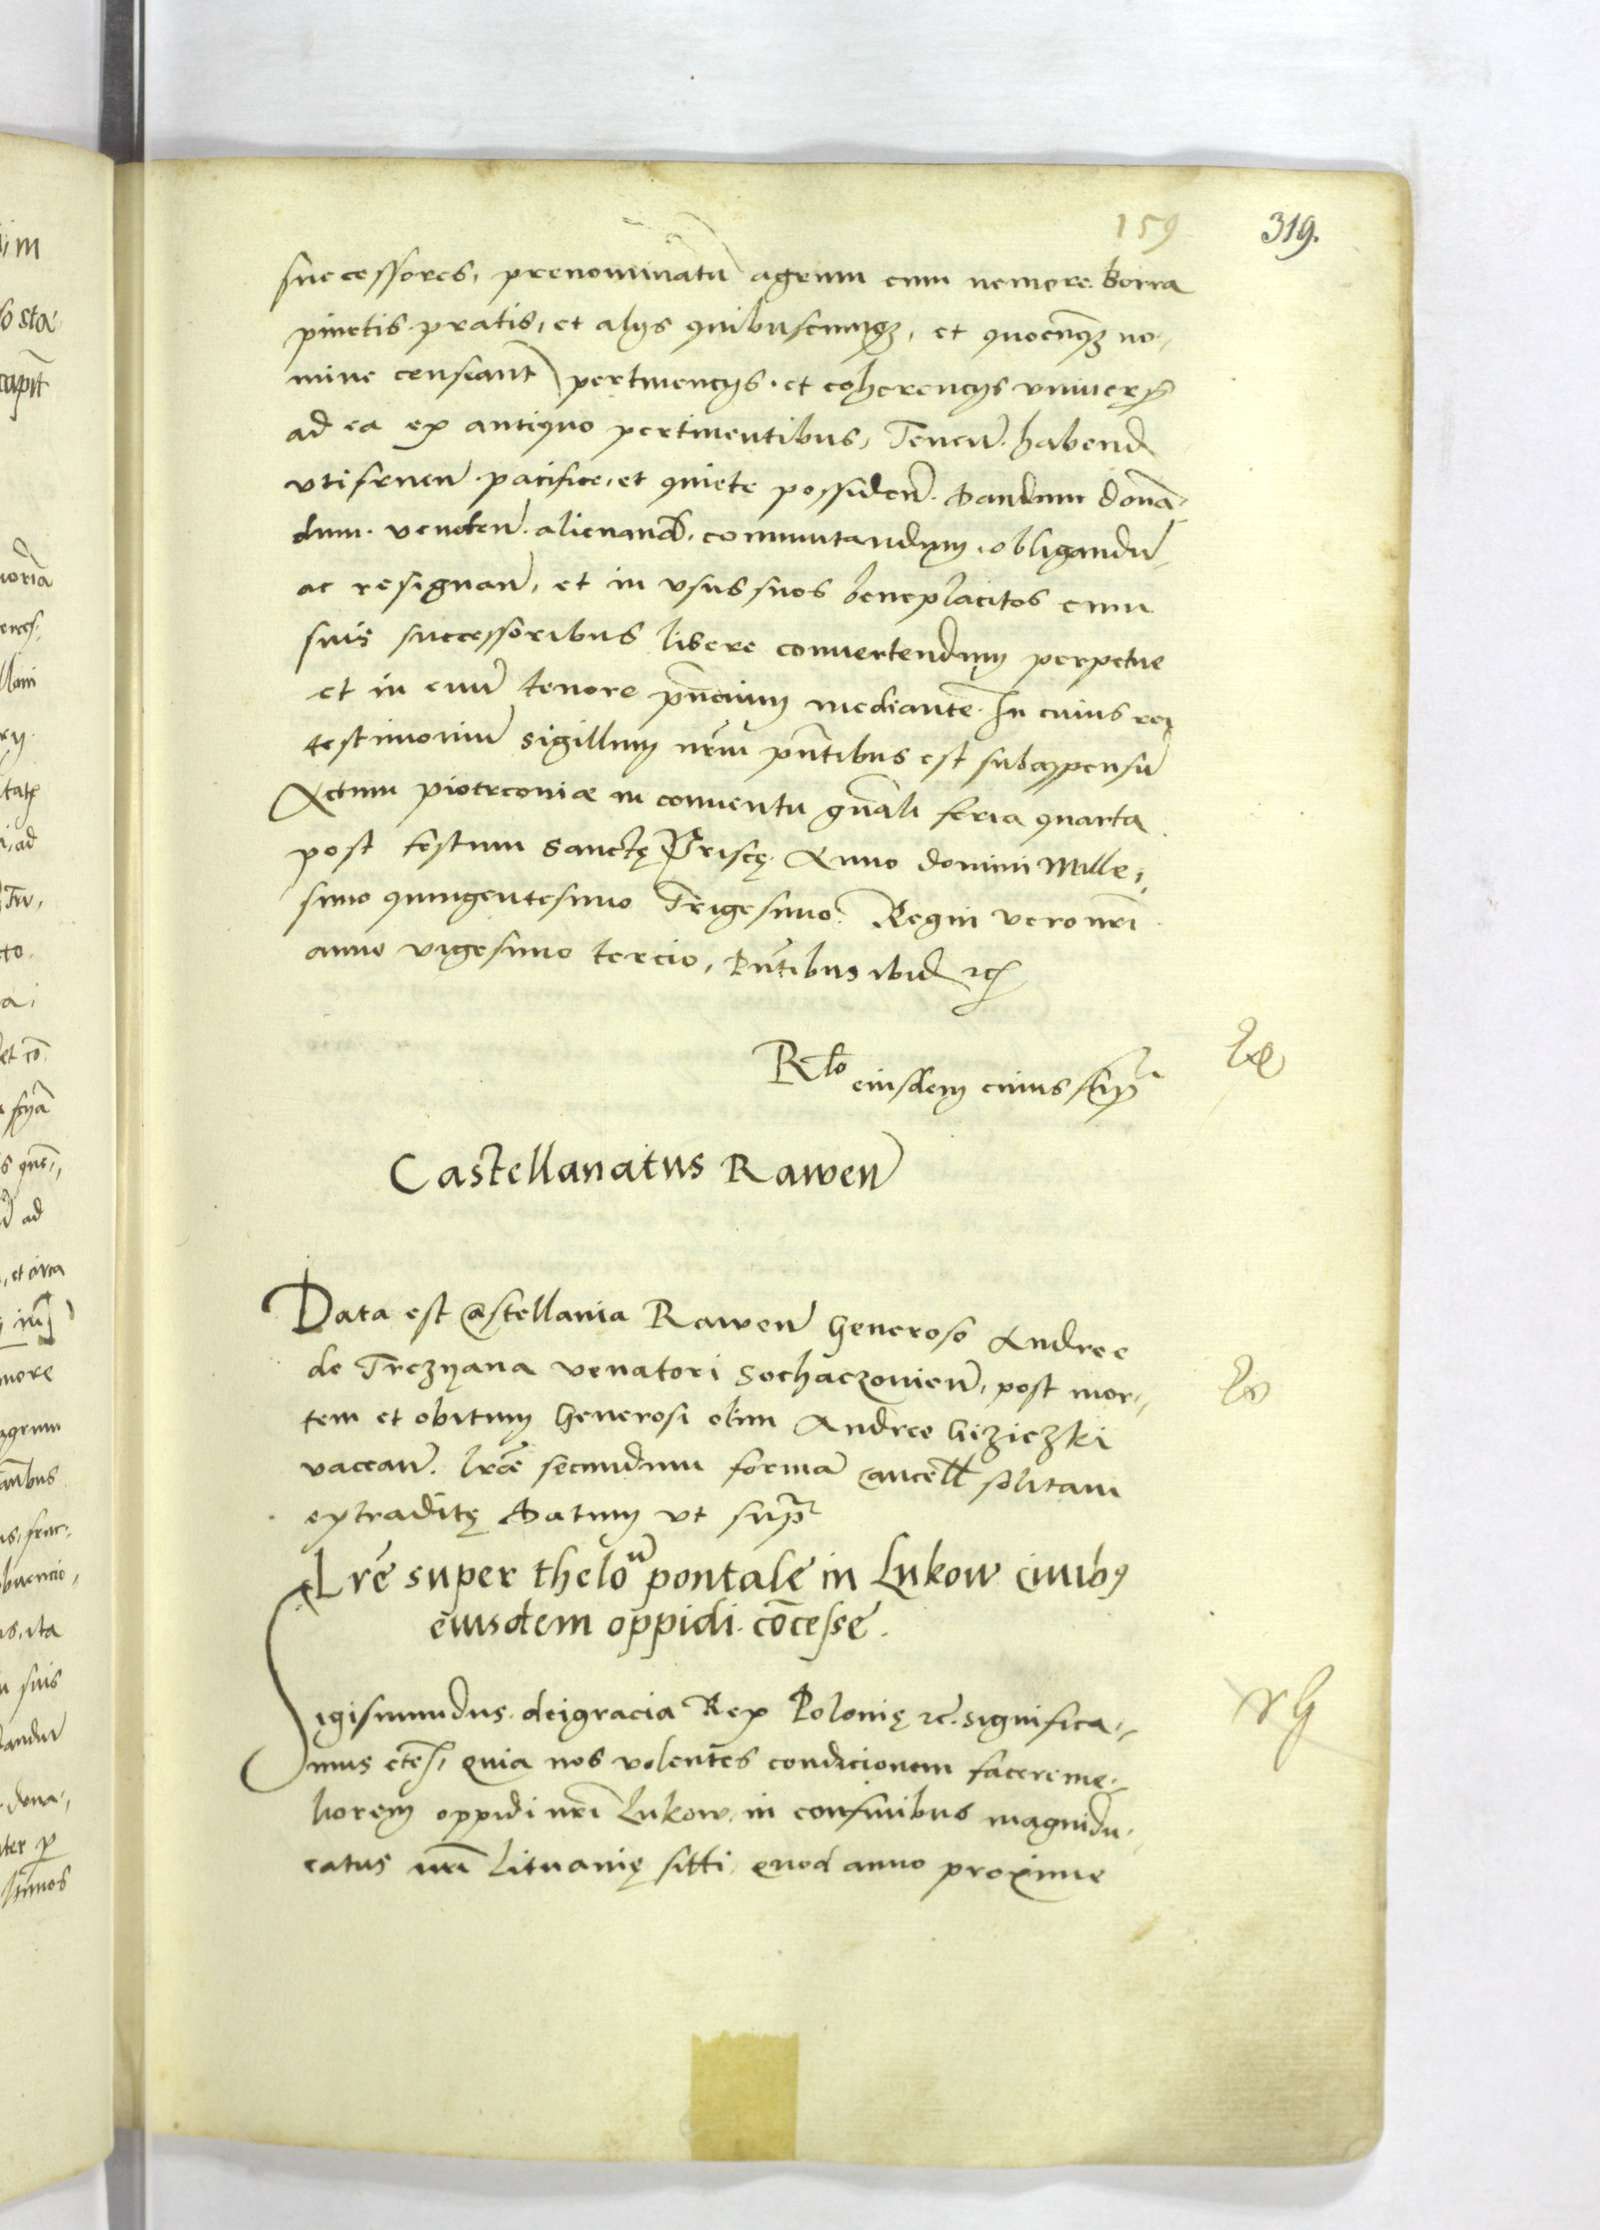 159 319.
successores, prenominatū agrum cum nemore borra
pinetis pratis, et alijs quibuscumqʒ, et quocūqʒ no-
mine censeant pertinencijs et coherencijs vniuers
ad ea ex antiquo pertinentibus, Tenen̄. habend
vtifruen̄ pacifice, et quiete possiden̄. Dandum donā-
dum. venden̄. alienand, commutandum, obligandū
ac resignan̄, et in vsus suos beneplacitos cum
suis successoribus libere conuertendum perpetue
et in euū tenore pñcium mediante. In cuius rei
testimoniū sigillum nrm̄ pñtibus est subappensū
Actum piotrconiæ in conuentu gñali feria quarta
post festum sanctę Priscę. Anno domini Mille-
simo quingentesimo Trigesimo. Regni vero nrī
anno vigesimo tercio, Pñtibus ibid etc
Rlo eiusdem cuius sup
Castellanatus Rawen̄
Data est castellania Rawen̄ Generoso Andree
de Trezyana venatori Sochaczouien̄, post mor-
tem et obitum Generosi olim Andree
vacean̄. lrē secundum formā cancell solitam
extraditę Datum vt supra
Lrē super thelou pontale in Lukow ciuibꝰ
eiusdem oppidi. cōcesse.
Sigismundus. dei gracia Rex Polonię etc. significa-
mus etc, quia nos volentes condicionem facere me-
liorem oppidi nrī Lukow, in confinibus magnidu-
catus nrī Lituanię sitti, quod anno proxime